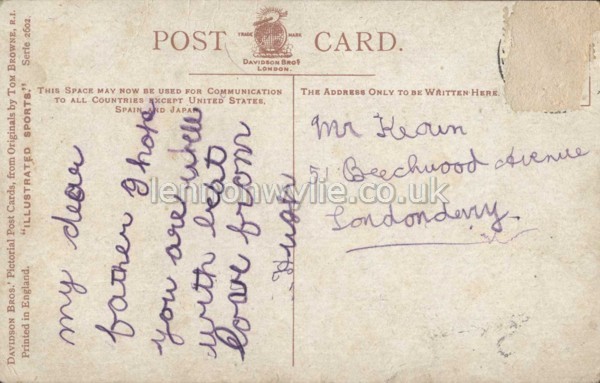 POST CARD.
TRADE MARK
DAVIDSON BROS
LONDON.
THIS SPACE MAY NOW BE USED FOR COMMUNICATION
TO ALL COUNTRIES EXCEPT UNITED STATES,
SPAIN AND JAPAN.
THE ADDRESS ONLY TO BE WRITTEN HERE.
DAVIDSON BROS.' Pictorial Post Cards, from Originals by TOM BROWNE, R.I.
Printed in England. "ILLUSTRATED SPORTS." Serie 2602.
my dear
father I hope
you are well
with best
love from
Hugh
Mr Keown
51 Beechwood Avenue
Londonderry.
lennonwylie.co.uk